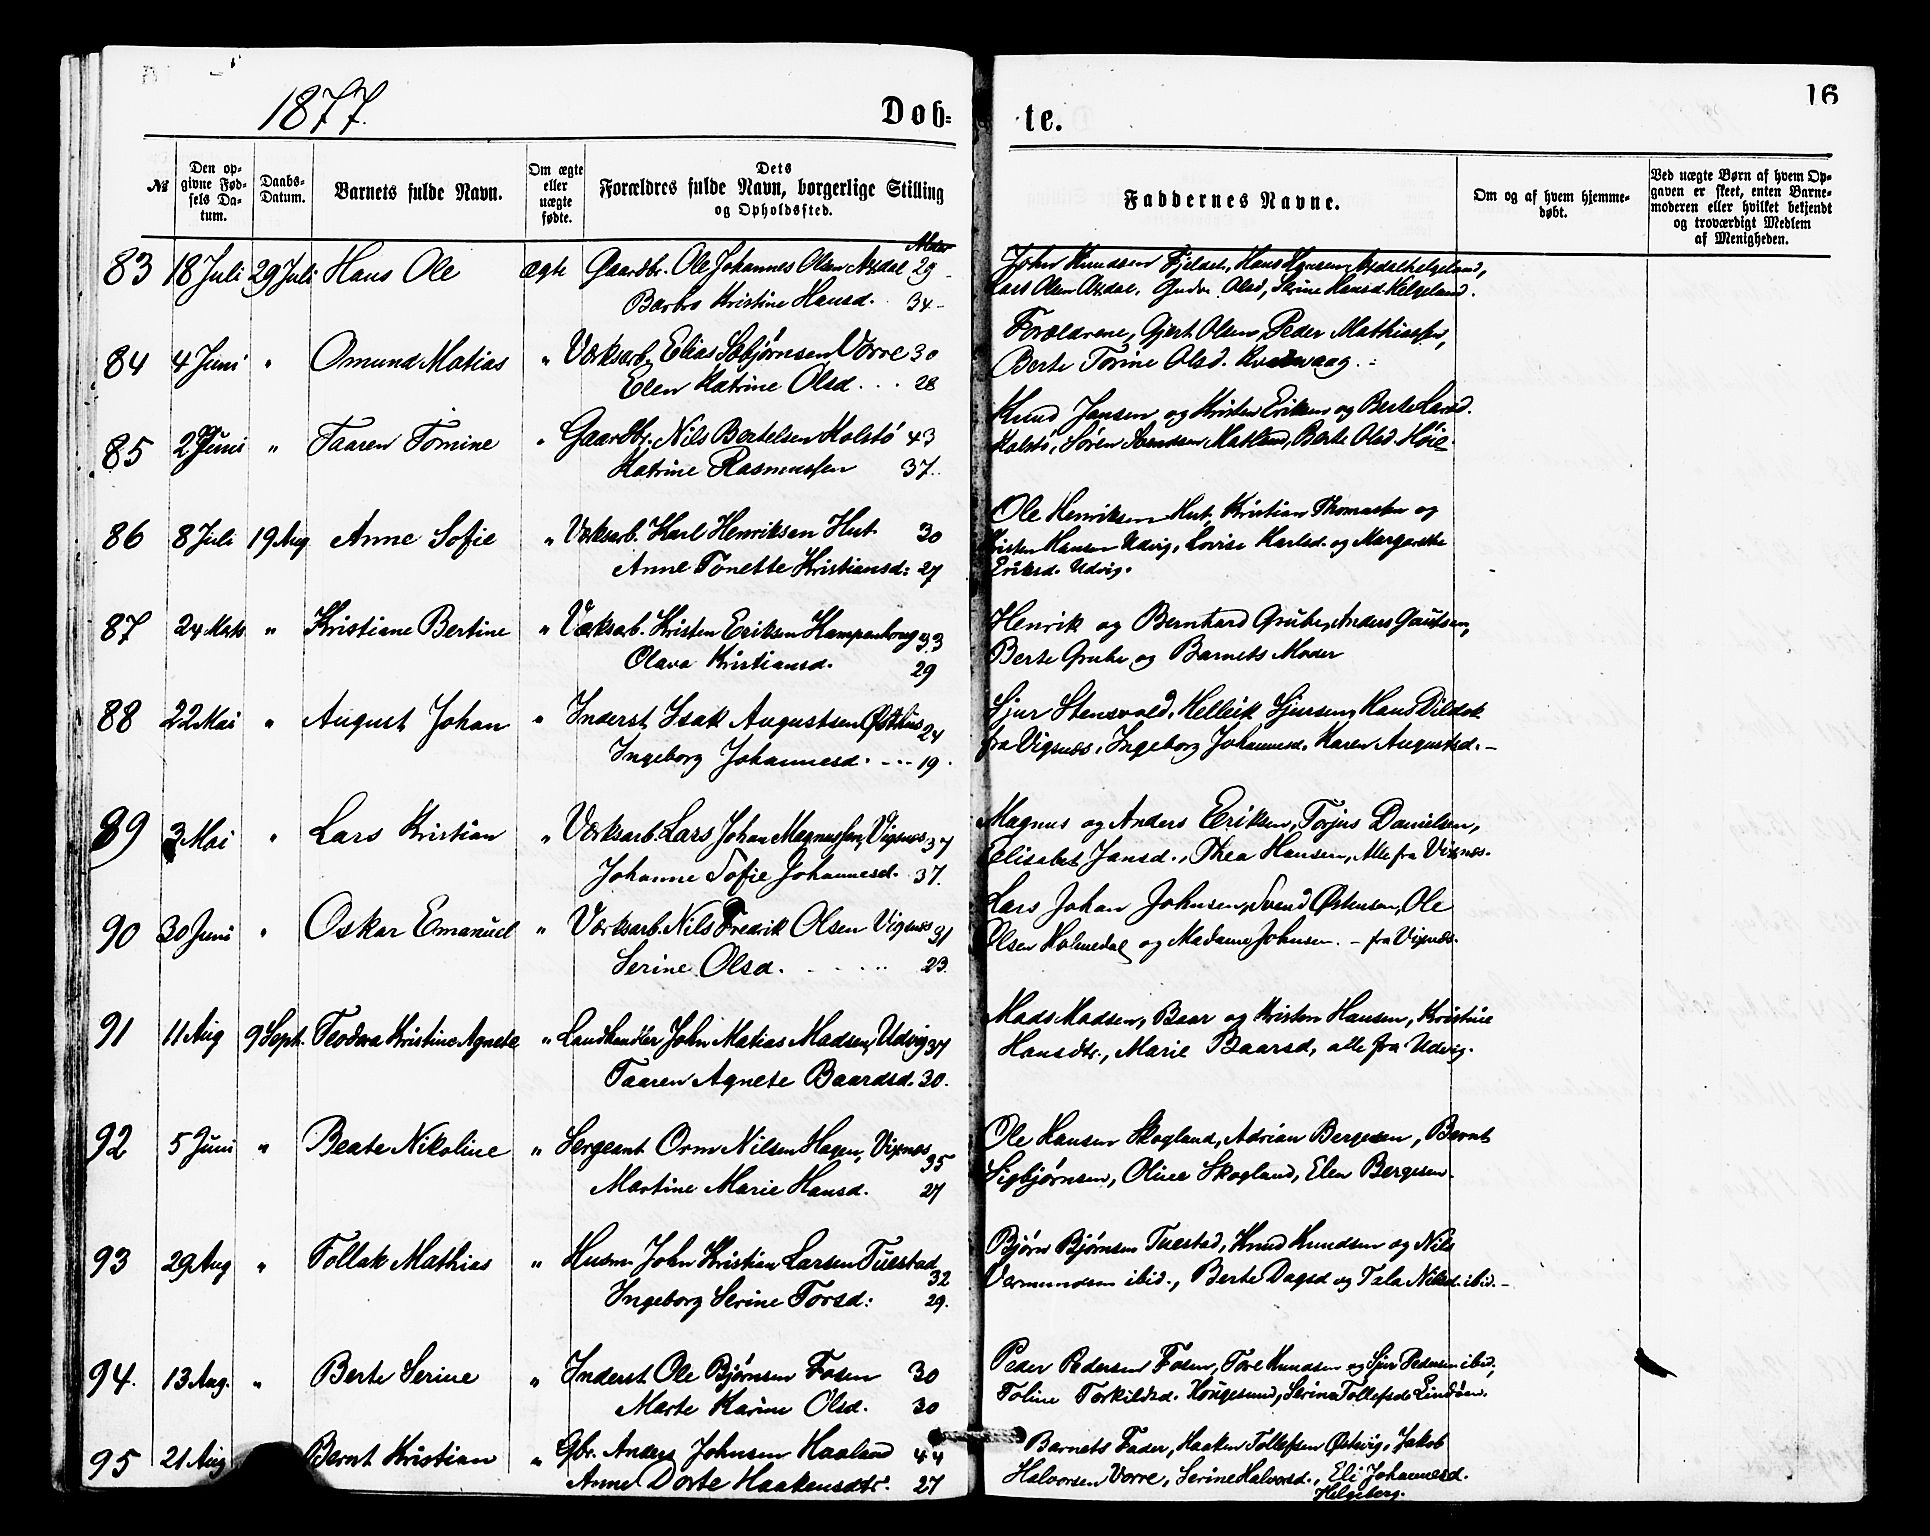 1877.
Døb-
te.
16
№
Den op-
givne Fød-
sels Da-
tum.
Daabs-
Datum.
Barnets fulde Navn.
Om ægte
eller
uægte
fødte.
Dets
Forældres fulde Navn, borgerlige Stilling
og Opholdssted.
Faddernes Navne.
Om og af hvem hjemme-
døbt.
Ved uægte Børn af hvem Op-
gaven er skeet, enten Barne-
moderen eller hvilket bekjendt
og troværdigt Medlem
af Menigheden.
83 18 Juli 29 Juli Hans Ole ægte Gaardbr. Ole Johannes Olsen Axdal 29
Barbro Kristine Hansd. 34
John Knudsen Fjeldet, Hans Hansen Axdalhelgeland,
Lars Olsen Axdal, Olsd, Serine Hansd. Helgeland.
84 4 Juni " Omund Matias " Værksarb. Elias Sebjørnsen Vorre 30
Elen Katrine Olsd. . . 28
Forældrene, Gjert Olsen, Peder Mathiassen,
Berte Torine Olsd. Kvalevaag.
85 2 Juni " Taaren Tomine " Gaardbr. Nils Bertelsen Kolstø 43
Katrine Rasmussen 37.
Knud Jansen og Kristen Eriksen og Berte Larsd.
Kolstø, Søren Svendsen Matland, Berte Olsd. Høie.
86 8 Juli 19 Aug Anne Sofie " Værksarb. Karl Henriksen Hut. 30
Anne Tonette Kristiansd: 27
Ole Henriksen Hut, Kristian Thomassen og
Kristen Hansen Udvig, Lovise Karlsd. og Margrethe
Eriksd. Udvig.
87 24 Marts " Kristiane Bertine " Værksarb. Kristen Eriksen Kampenhoug 33
Olava Kristiansd. 29
Henrik og Bernhard Grube, Anders Gautsen,
Berte Grube og Barnets Moder
88 22 Mai " August Johan " Inderst Isak Augustsen Østhus 24
Ingeborg Johannesd. - .. 19.
Sjur Stensvold, Hellik Sjursen, Hans
fra Vigsnæs, Ingeborg Johannesd. Karen Augustsd. -
89 3 Mai " Lars Kristian " Værksarb. Lars Johan Magnussen, Vigsnæs 37
Johanne Sofie Johannesd. 37.
Magnus og Anders Eriksen, Torjus Danielsen,
Elisabet Jansd., Thea Hansen, Alle fra Vixnæs.
90 30 Juni " Oskar Emanuel " Værksarb. Nils Fredrik Olsen Vigsnæs 31
Serine Olsd. 23.
Lars Johan Johnsen, Svend Østensen, Ole
Olsen Holmedal og Madame Johnsen. - fra Vixnæs.
91 11 Aug 9 Sept. Teodora Kristine Agnete " Landhandler John Matias Madsen, Udvig 37
Taaren Agnete Baardsd. 30.
Mads Madsen, Baar og Kristen Hansen, Kristine
Hansdtr., Marie Baarsd, alle fra Udvig.
92 5 Juni " Beate Nikoline " Sergeant Orm Nilsen Hagen, Vixnæs 35
Martine Marie Hansd. 27
Ole Hansen Skogland, Adrian Bergesen, Bernt
Sigbjørnsen, Oline Skogland, Elen Bergesen.
93 29 Aug " Tollak Mathias " Husm John Kristian Larsen Tuestad 32
Ingeborg Serine Torsd: 29.
Bjørn Bjørnsen Tuestad, Knud Knudsen og Nils
Vermundsen ibid., Berte Dagsd og Tala Nilsd. ibid. -
94. 13 Aug. " Berte Serine " Inderst Ole Bjørnsen Fosen 30
Marte Karine Olsd. 30
Peder Pedersen Fosen, Tore Knudsen og Sjur Pedersen ibid,
Toline Torkildsd. Hougesund, Serine Tollefsd. Lindøen.
95 21 Aug Bernt Kristian " Gbr. Anders Johnsen Haaland 44
Anne Dorte Haakensdtr. 27
Barnets Fader, Haaken Tollefsen Østvig, Jakob
Halvorsen Vorre, Serine Halvorsd., Eli Johannesd.
Helgeberg.